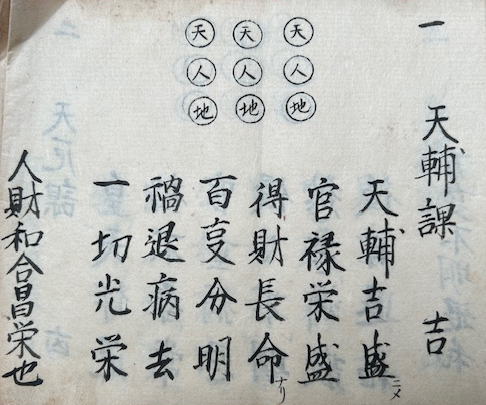 一 天輔課 吉
天人地
天人地
天人地
天輔吉盛ニメ
官禄栄盛
得財長命ナリ
百叓分明
禍退病去
一切光栄
人財和合昌栄也